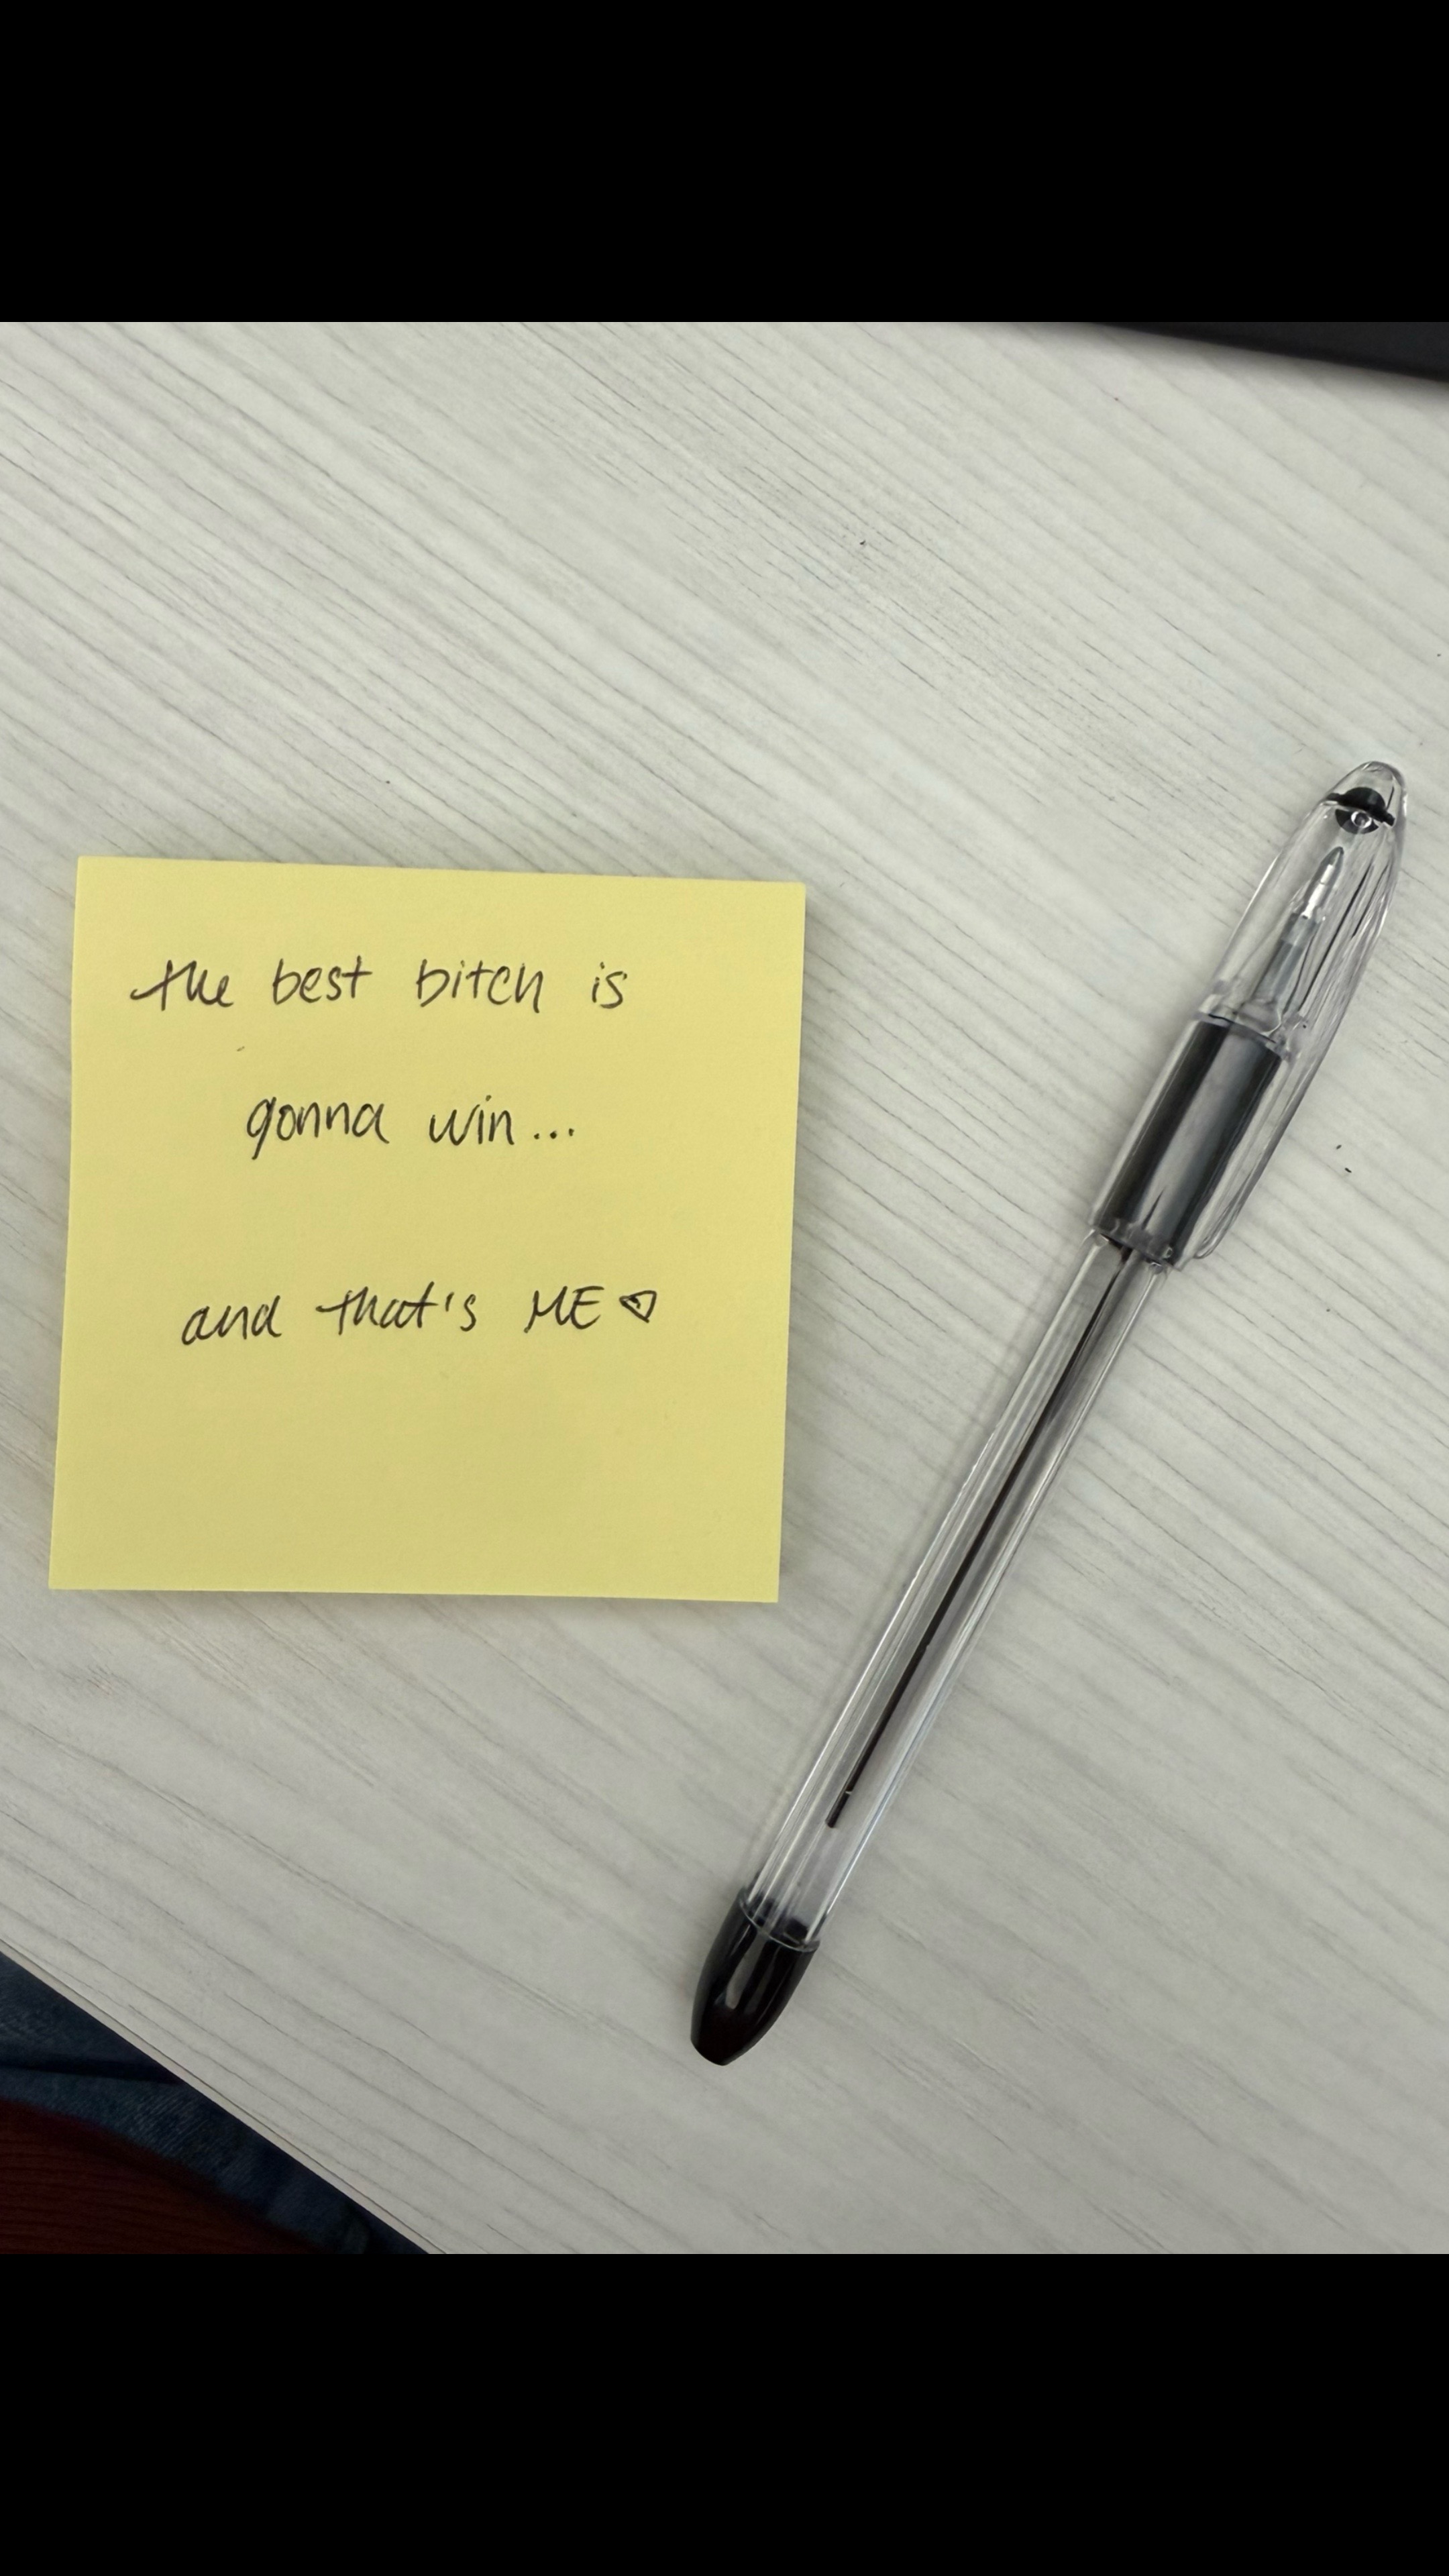 the best bitch is
gonna win...
and that's ME ♡